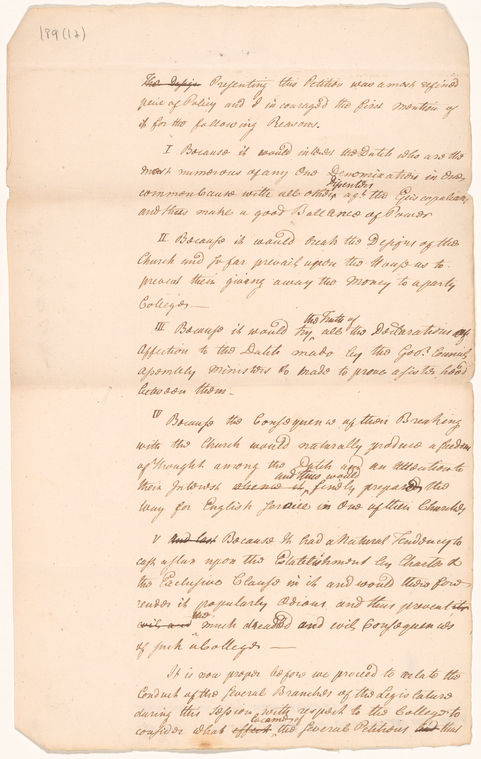 189(12)
The design Presenting this Petition was a most refined
piece of Policy and I incouraged the first mention of
it for the following Reasons.
I Because it would interest the Dutch who are the
most numerous of any One Denomination in One
common Cause with all other Dissenters agt the Episcopalians
and thus make a good Ballance of Power
II Because it would break the Designs of the
Church and so far prevail upon the House as to
prevent their giving away the Money to a party
College—
III Because it would try the Truth of all the Declarations of
Affection to the Dutch made by the Govr. Council
Assembly Ministers &c made to prove a sister hood
between them—
IV Because the Consequence of their Breaking
with the Church would naturally produce a freedom
of thought among the Dutch and an attention to
their Interest and thus would finely prepare the
way for English Service in One of their Churches
V And last Because It had a Natural Tendency to
cast a slur upon the Establishment by Charter &
the Exclusive Clause in it and would therefore
render it popularly Odious and thus prevent the
evil and the much dreaded and evil Consequences
of such a College—
It is now proper before we proceed to relate the
Conduct of the several Branches of the Legislature
during this Session with respect to the College to
consider what effect became of the several Petitions and thus